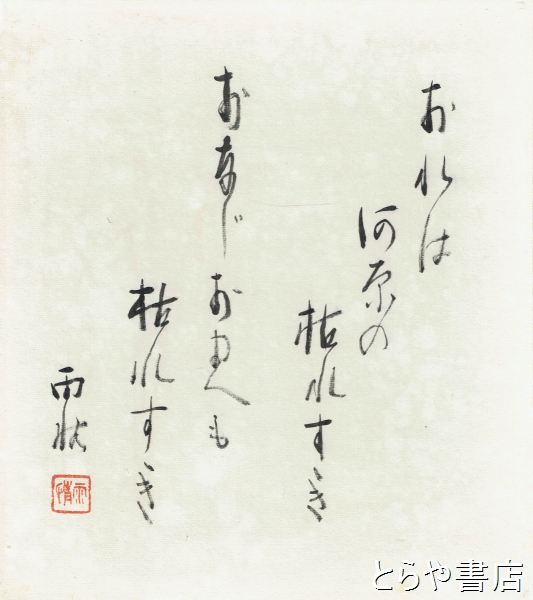 おれは
河原の
枯れすすき
おなじおまへも
枯れすすき
雨情
雨情
とらや書店